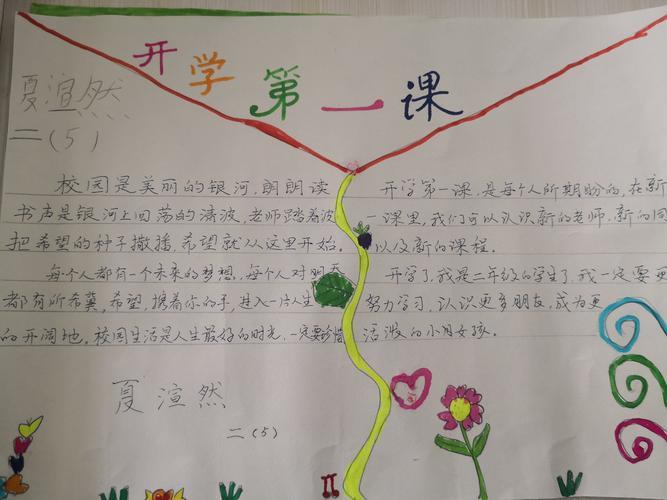 开学第一课
夏渲然
二(5)
校园是美丽的银河,朗朗读
书声是银河上回荡的清波,老师踏着波
把希望的种子撒播,希望就从这里开始。
每个人都有一个未来的梦想,每个人对明天
都有所希冀,希望,携着你的手,进入一片人生
的开阔地。校园生活是人生最好的时光,一定要珍惜
夏渲然
二(5)
开学第一课,是每个人所期盼的,在新
一课里,我们可以认识新的老师,新的同
以及新的课程。
开学了,我是二年级的学生了,我一定要更
努力学习,认识更多朋友,成为更
活泼的小月女孩。